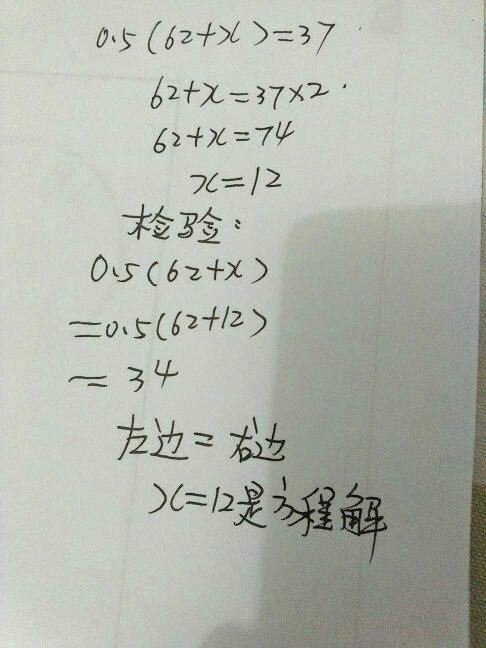 0.5(62+x)=37
62+x=37×2.
62+x=74
x=12
检验:
0.5(62+x)
=0.5(62+12)
=34
左边=右边
x=12是方程解